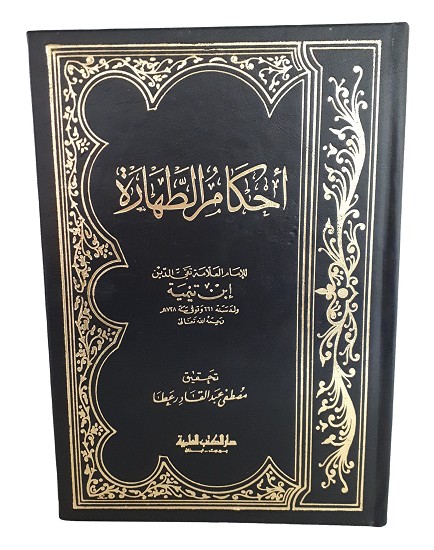 أحكام الطهارة
للإمام العلامة تقي الدين
إبن تيمية
ولد سنة ٦٦١ وتوفي سنة ٧٢٨هـ
رحمه الله تعالى
تحقيق
مصطفى عبد القادر عطا
دار الكتب العلمية
بيروت - لبنان